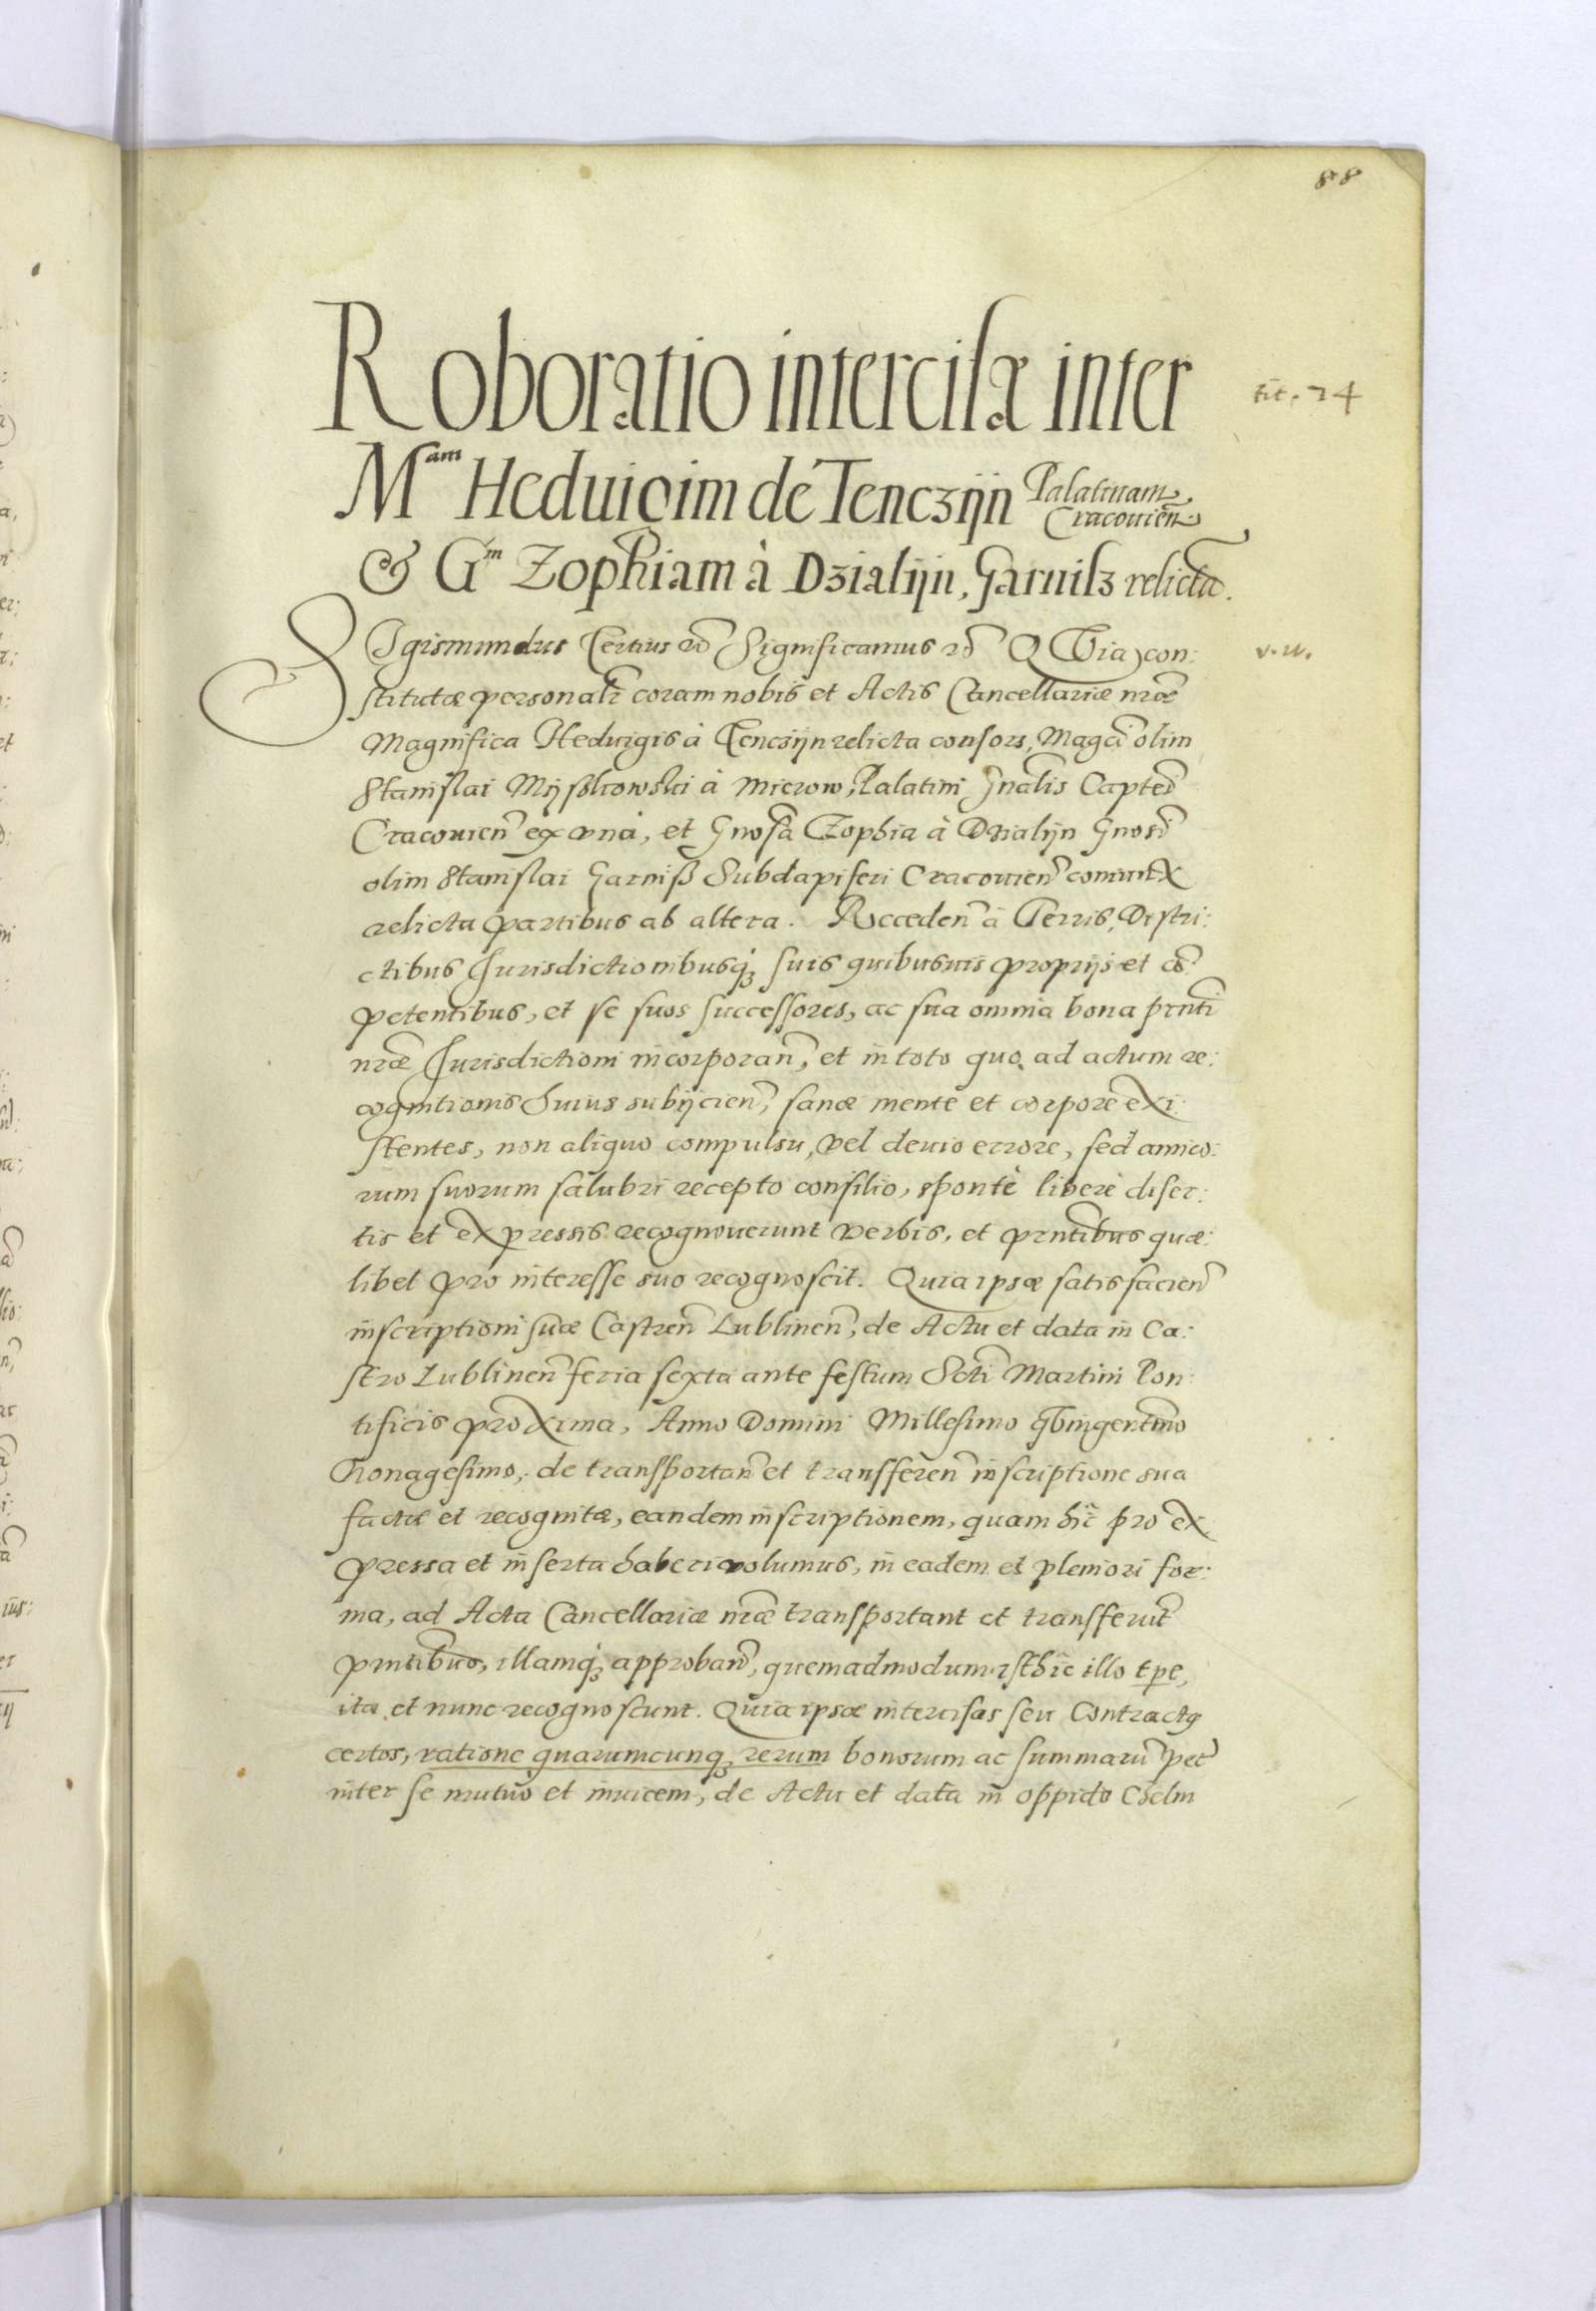 88
Roboratio intercisæ inter
tit. 24
Mam Heduigim de Tenczÿn Palatinam Cracouien̄
& Gm Zophiam à Dzialÿn, Garnisz relictā.
SIgismundus Tertius etc̄ Significamus etc̄ QVia con:
v. u.
stitutæ personalr̄ coram nobis et Actis Cancellariæ nræ
Magnifica Heduigis à Tenczÿn relicta consors, Magci olim
Stanislai Mÿszkowski à Mierow, Palatini Gnalis Capted̄
Cracouien̄ ex vna, et Gnosa Zophia à Dzialÿn Gnosi
olim Stanislai Garniß Subdapiferi Cracouien̄ coniunx
relicta partibus ab altera. Receden̄ à Terris, Distri:
ctibus Jurisdictionibusq; suis quibusuis proprijs et cō:
petentibus, et se suos successores, ac sua omnia bona prnti
nræ Jurisdictioni incorporan̄, et in toto quo ad actum re:
cognitionis huius subijcien̄, sanæ mente et corpore exi:
stentes, non aliquo compulsu, vel deuio errore, sed amico:
rum suorum salubri recepto consilio, sponte libere diser:
tis et expressis recognouerunt verbis, et prntibus quæ:
libet pro interesse suo recognoscit. Quia ipsæ satisfacien̄
inscriptioni suæ Castren̄ Lublinen̄, de Actu et data in Ca:
stro Lublinen̄ feria sexta ante festum Scti Martini Pon:
tificis proxima, Anno Domini Millesimo Qvingentmo
Nonagesimo, de transportan̄ et transferen̄ inscriptione sua
factæ et recognitæ, eandem inscriptionem, quam hic pro ex
pressa et inserta haberi volumus, in eadem et pleniori for:
ma, ad Acta Cancellariæ nræ transportant et transferunt
prntibus, illamq; approban̄, quemadmodum isthic illo tpe,
ita et nunc recognoscunt. Quia ipsæ intercisas seu Contractg
certos, ratione quarumcunq; rerum bonorum ac summarū pec̄
inter se mutuo et inuicem, de Actu et data in oppido Chelm